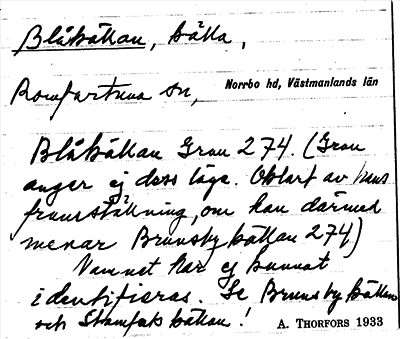 Blåkällan, källa,
Romfartuna sn, Norrbo hd, Västmanlands län
Blåkällan Grau 274. (Grau
anger ej dess läge. Oklart av hans
framställning, om han därmed
menar Brunsbykällan 274)
Namnet har ej kunnat
identifieras. Se Brunsbykällan
och Stamfakkällan!
A. THORFORS 1933